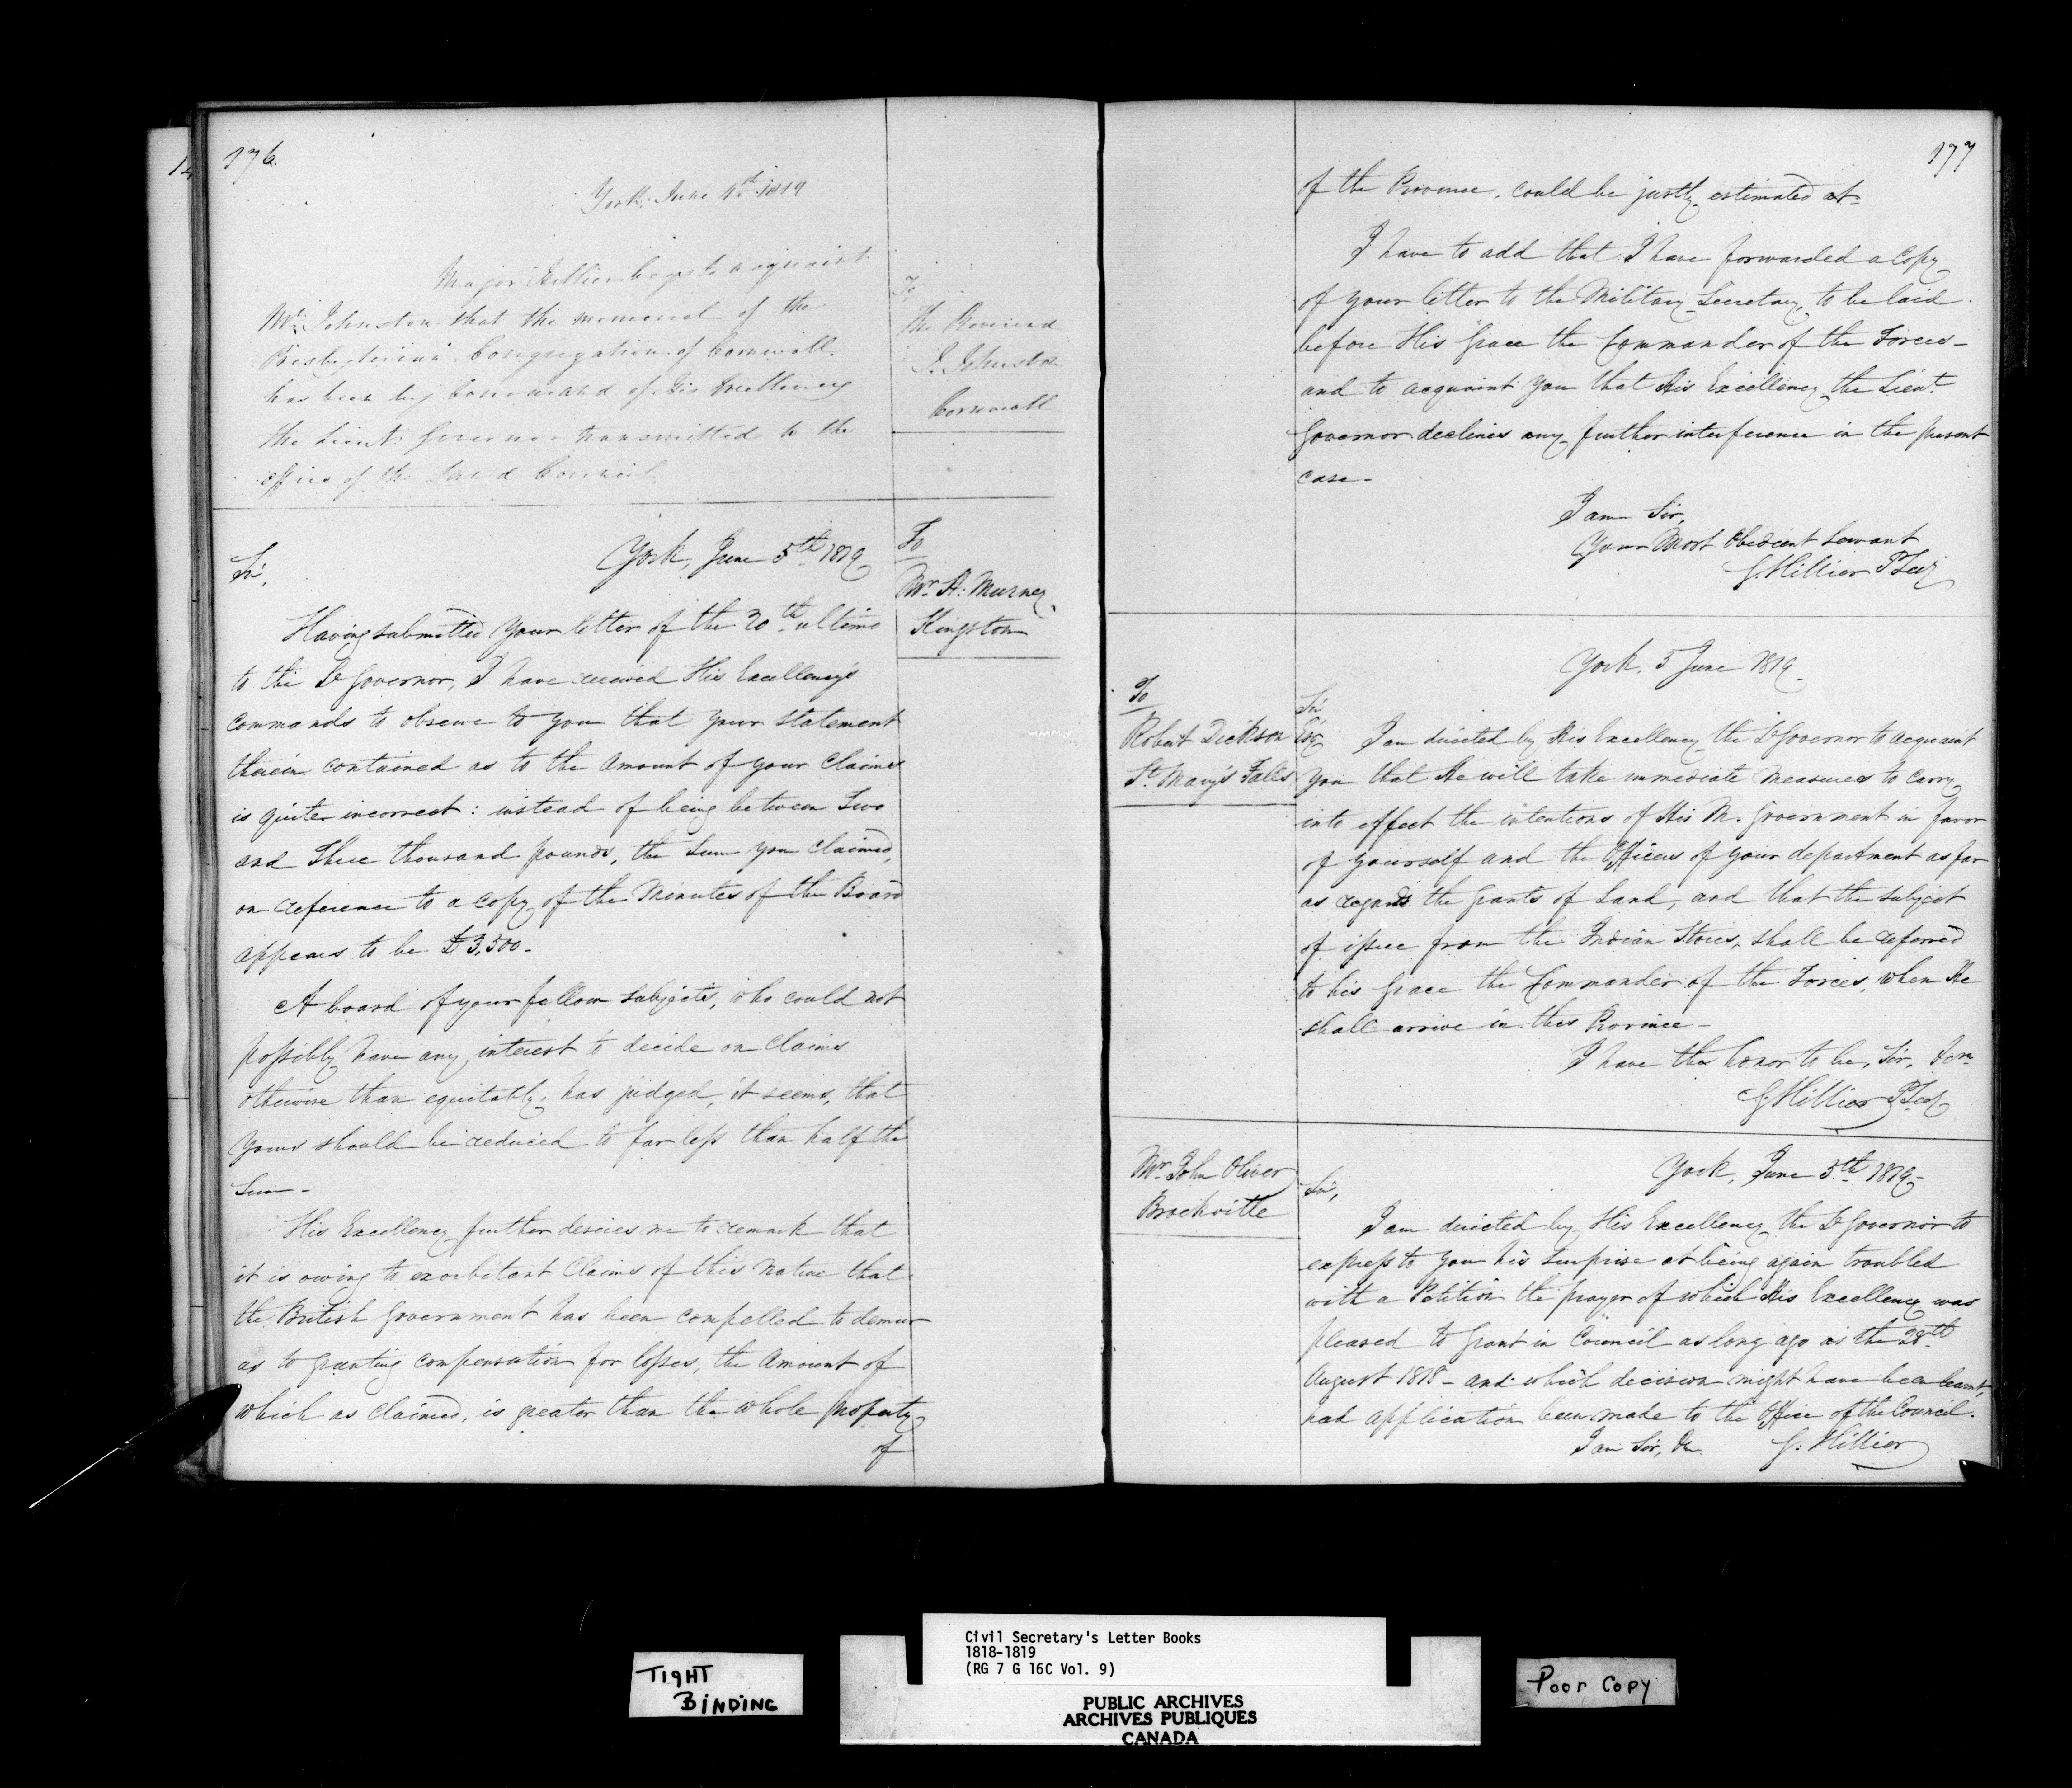 176.
York, June 4th 1819
Major Hillier begs to acquaint
Mr. Johnston that the memorial of the
Presbyterian Congregation of Cornwall
has been by Command of His Excellency
the Lieut. Governor transmitted to the
office of the Land Council.
To
The Reverend
J. Johnston
Cornwall
York, June 5th 1819
Sir,
To
Mr. A: Murney
Kingston
Having submitted your letter of the 20th ultimo
to the Lt Governor, I have received His Excellency's
commands to observe to you that your statement
therein contained as to the amount of your Claims
is quite incorrect: instead of being between Two
and Three thousand pounds, the Sum you claimed,
on reference to a copy of the Minutes of the Board
appears to be £3,500.
A board of your fellow subjects, who could not
possibly have any interest to decide on claims
otherwise than equitably, has judged, it seems, that
yours should be reduced to far less than half the
Sum -
His Excellency further desires me to remark that
it is owing to exorbitant Claims of this nature that
the British Government has been compelled to demur
as to granting compensation for losses, the Amount of
which as claimed, is greater than the whole property
of
177
of the Province, could be justly estimated at-
I have to add that I have forwarded a Copy
of your letter to the Military Secretary, to be laid
before His Grace the Commander of the Forces -
and to acquaint you that His Excellency the Lieut.
Governor declines any further interference in the present
case -
I am Sir,
Your Most Obedient Servant
G. Hillier P Secy
York, 5 June 1819.
To
Robert Dickson Esqr
St. Mary's Falls
Sir
I am directed by His Excellency the Lt Governor to acquaint
you that He will take immediate measures to carry
into effect the intentions of His M. Government in favor
of yourself and the Officers of your department as far
as regards the grants of Land, and that the subject
of issue from the Indian Stores, shall be referred
to his Grace the Commander of the Forces, when He
shall arrive in this Province -
I have the honor to be, Sir, &ca
G Hillier P Secy
Mr. John Oliver
Brockville
York, June 5th 1819 -
Sir,
I am directed by His Excellency the Lt Governor to
express to you his surprise at being again troubled
with a Petition the prayer of which His Excellency was
pleased to grant in Council as long ago as the 28th
August 1818 - and which decision might have been learnt,
had application been made to the Office of the Council.
I am Sir, &c G. Hillier
TIGHT
BINDING
Civil Secretary's Letter Books
1818-1819
(RG 7 G 16C Vol. 9)
PUBLIC ARCHIVES
ARCHIVES PUBLIQUES
CANADA
Poor Copy